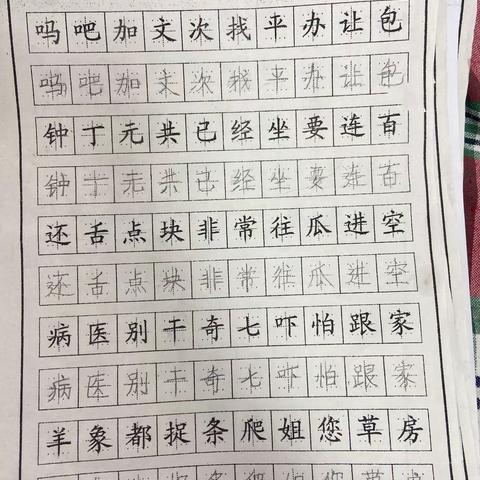 吗吧加文次找平办让包
吗吧加文次找平办让包
钟丁元共已经坐要连百
钟丁元共已经坐要连百
还舌点块非常往瓜进空
还舌点块非常往瓜进空
病医别干奇七吓怕跟家
病医别干奇七吓怕跟家
羊象都捉条爬姐您草房
羊象都捉条爬姐您草房